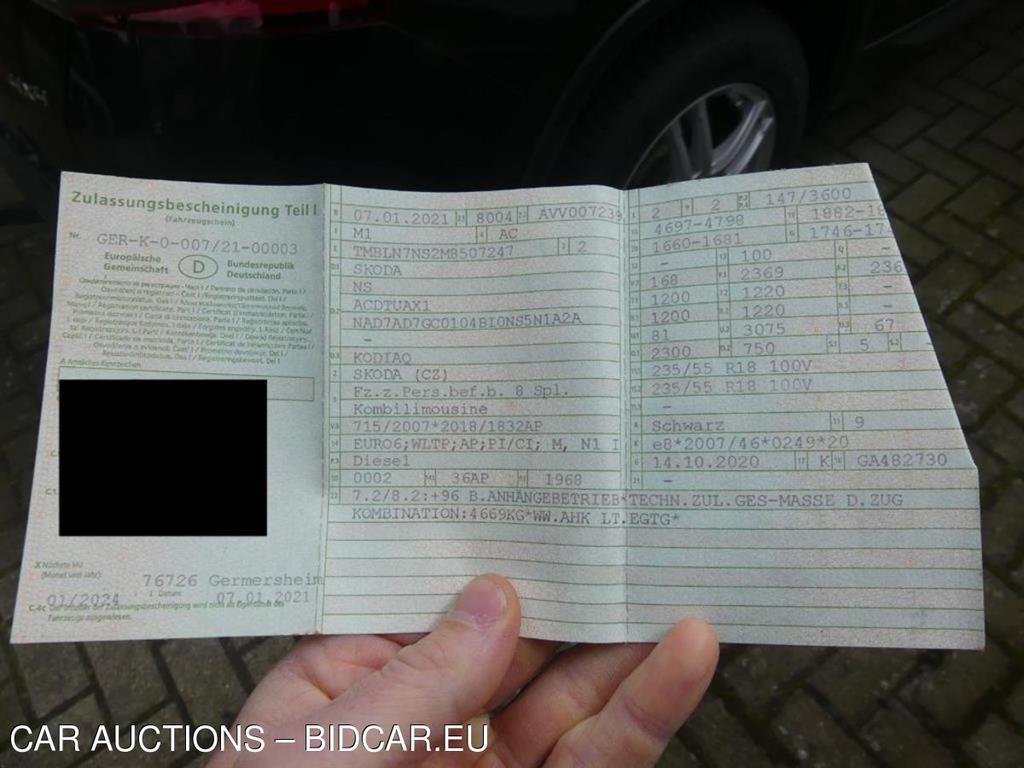 4x4
Zulassungsbescheinigung Teil I
(Fahrzeugschein)
Nr. GER-K-0-007/21-00003
Europäische Gemeinschaft
D
Bundesrepublik Deutschland
A Amtliches Kennzeichen
X Nächste HU
(Monat und Jahr)
01/2024
76726 Germersheim
I Datum: 07.01.2021
C.4c Der Inhaber der Zulassungsbescheinigung wird nicht als Eigentümer des
Fahrzeugs ausgewiesen.
B 07.01.2021 2.1 8004 2.2 AVV007239
J M1 4 AC
E TMBLN7NS2M8507247 3 2
D.1 SKODA
NS
D.2 ACDTUAX1
NAD7AD7GC0104BI0NS5N1A2A
–
D.3 KODIAQ
2 SKODA (CZ)
5 Fz.z.Pers.bef.b. 8 Spl.
Kombilimousine
V.9 715/2007*2018/1832AP
14 EURO6;WLTP;AP;PI/CI; M, N1 I
P.3 Diesel
10 0002 14.1 36AP P.1 1968
22 7.2/8.2:+96 B.ANHÄNGEBETRIEB*TECHN.ZUL.GES-MASSE D.ZUG
KOMBINATION:4669KG*WW.AHK LT.EGTG*
L 2 9 2 P.2 P.4 147/3600
18 4697-4798 19 1882-18
20 1660-1681 G 1746-174
12 – 13 100 Q –
V.7 168 F.1 2369 F.2 236
7.1 1200 7.2 1220 7.3 –
8.1 1200 8.2 1220 8.3 –
U.1 81 U.2 3075 U.3 67
O.1 2300 O.2 750 S.1 5 S.2 –
15.1 235/55 R18 100V
15.2 235/55 R18 100V
15.3 –
R Schwarz 11 9
K e8*2007/46*0249*20
6 14.10.2020 17 K 16 GA482730
21 –
CAR AUCTIONS – BIDCAR.EU